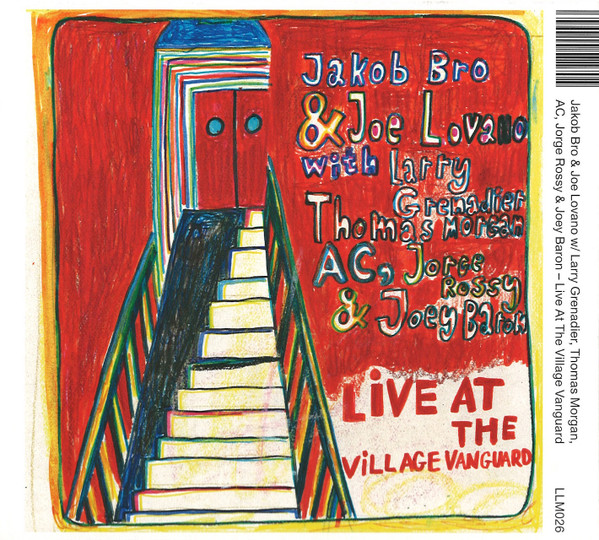 Jakob Bro
& Joe Lovano
with Larry
Grenadier
Thomas Morgan
AC, Jorge
Rossy
& Joey Baron
LiVE AT
THE
ViLLAGE VANGUARD
Jakob Bro & Joe Lovano w/ Larry Grenadier, Thomas Morgan,
AC, Jorge Rossy & Joey Baron – Live At The Village Vanguard
LLM026